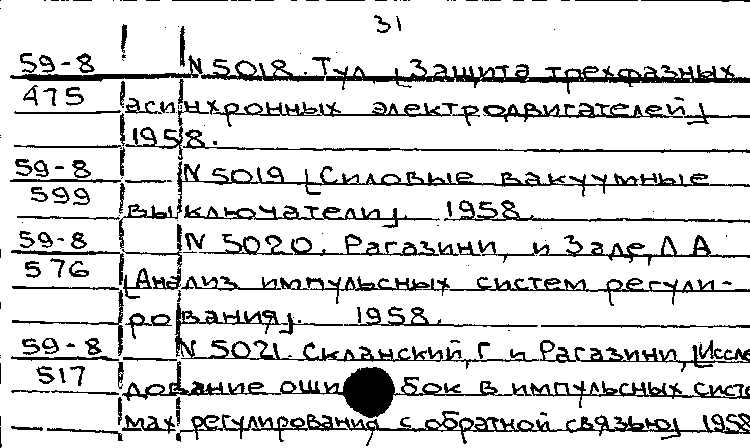 31
59-8 N 5018. Тул [Защита трехфазных
475 асинхронных электродвигателей]
1958.
59-8 N 5019 [Силовые вакуумные
599 выключатели]. 1958.
59-8 N 5020. Рагазини, и Заде, Л А
576 [Анализ импульсных систем регули-
рования]. 1958.
59-8 N 5021. Склански, Г и Рагазини, [Иссле
517 дование ошибок в импульсных систе
мах регулирования с обратной связью] 1958